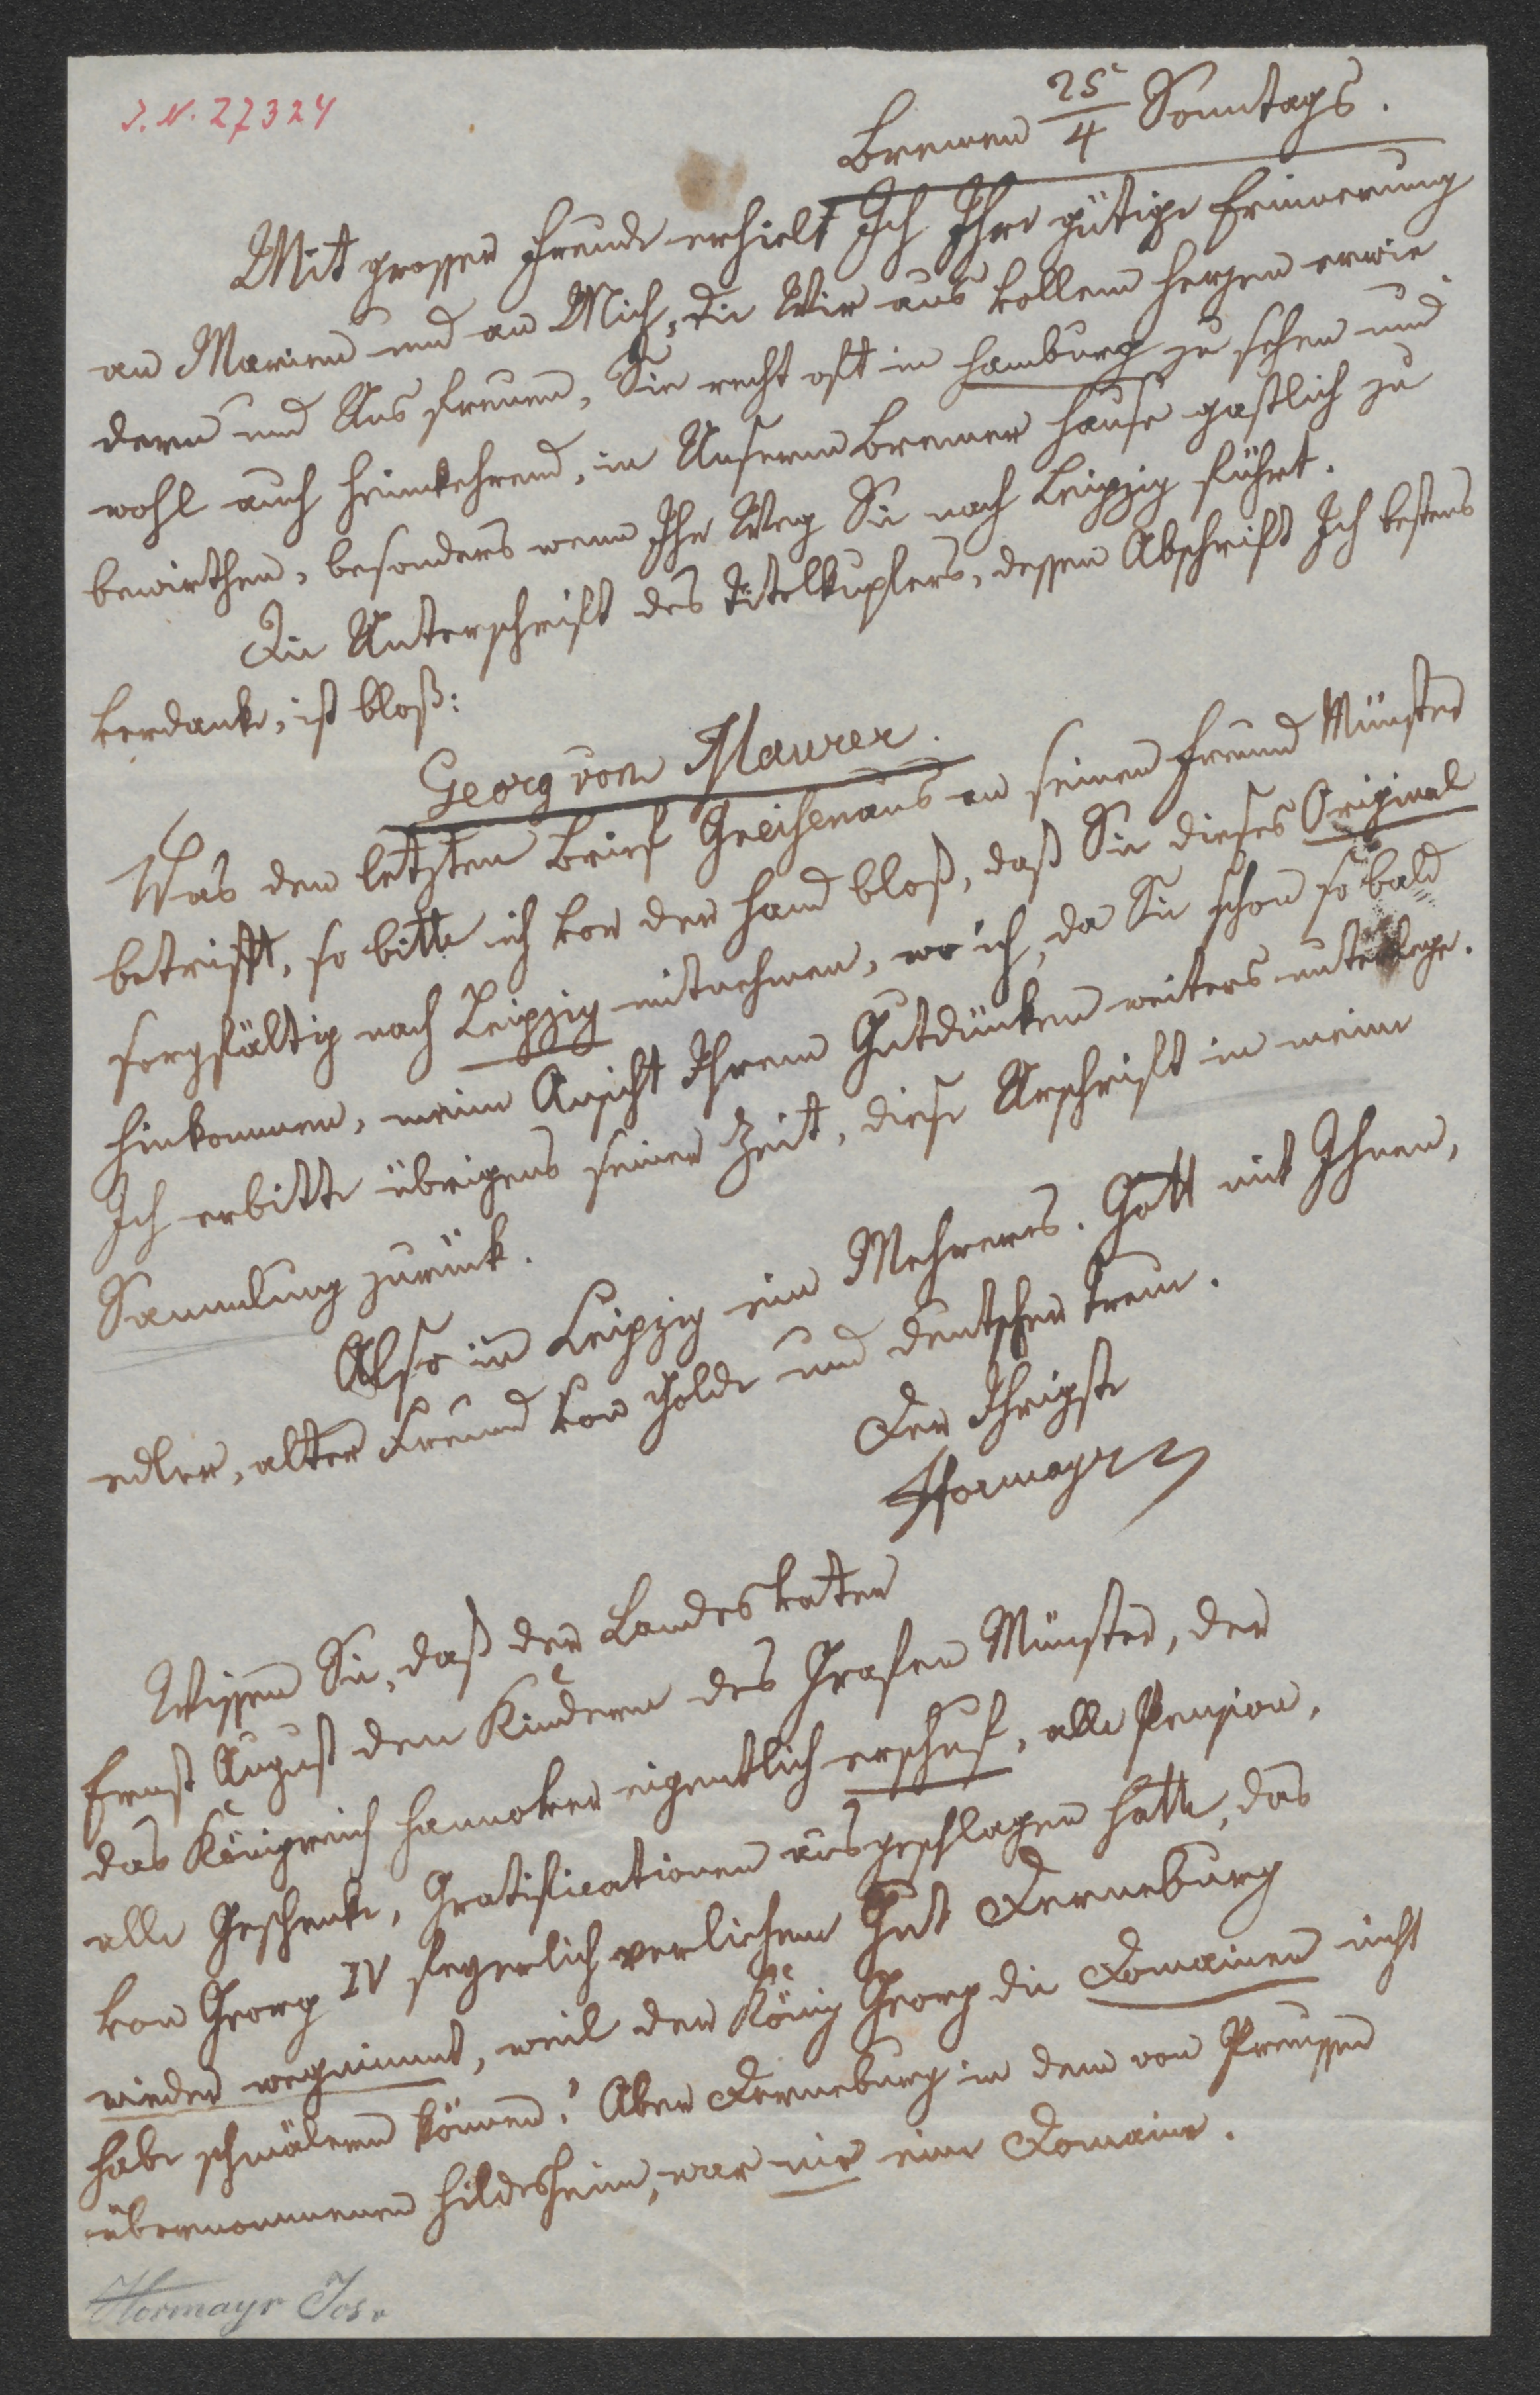 I. N. 27324
Bremen 25/4 Sonntags.
Mit grosser Freude erhielt Ich Ihre gütige Erinnerung
an Marien und an Mich, die Wir aus vollem Herzen erwie
dern und Uns freuen, Sie recht oft in Hamburg zu sehen und
wohl auch heimkehrend, in Unserm Bremer Hause gastlich zu
bewirthen, besonders wenn Ihr Weg Sie nach Leipzig führt.
Die Unterschrift des Titelkupfers, dessen Abschrift Ich bestens
verdanke, ist bloß:
Georg von Maurer.
Was den letzten Brief Gneisenaus an seinen Freund Münster
betrifft, so bitte ich vor der Hand bloß, daß Sie dieses Original
sorgfältig nach Leipzig mitnehmen, wo ich, da Sie schon so bald
hinkommen, meine Ansicht Ihrem Gutdünken weiters unterlege.
Ich erbitte übrigens seiner Zeit, diese Urschrift in meine
Sammlung zurück.
Also in Leipzig ein Mehreres. Gott mit Ihnen,
edler, alter Freund von Golde und deutscher Treue.
Der Ihrigste
Hormayr
Wissen Sie, daß der Landesvater
Ernst August den Kindern des Grafen Münster, der
das Königreich Hannover eigentlich erschuf, alle Pension,
alle Geschenke, Gratificationen ausgeschlagen hatte, das
von Georg IV feyerlich verliehene Gut Derneburg
wieder wegnimmt, weil der König Georg die Domainen nicht
habe schmälern können! Aber Derneburg in dem von Preussen
übernommenen Hildesheim, war nie eine Domaine.
Hormayr Jos.